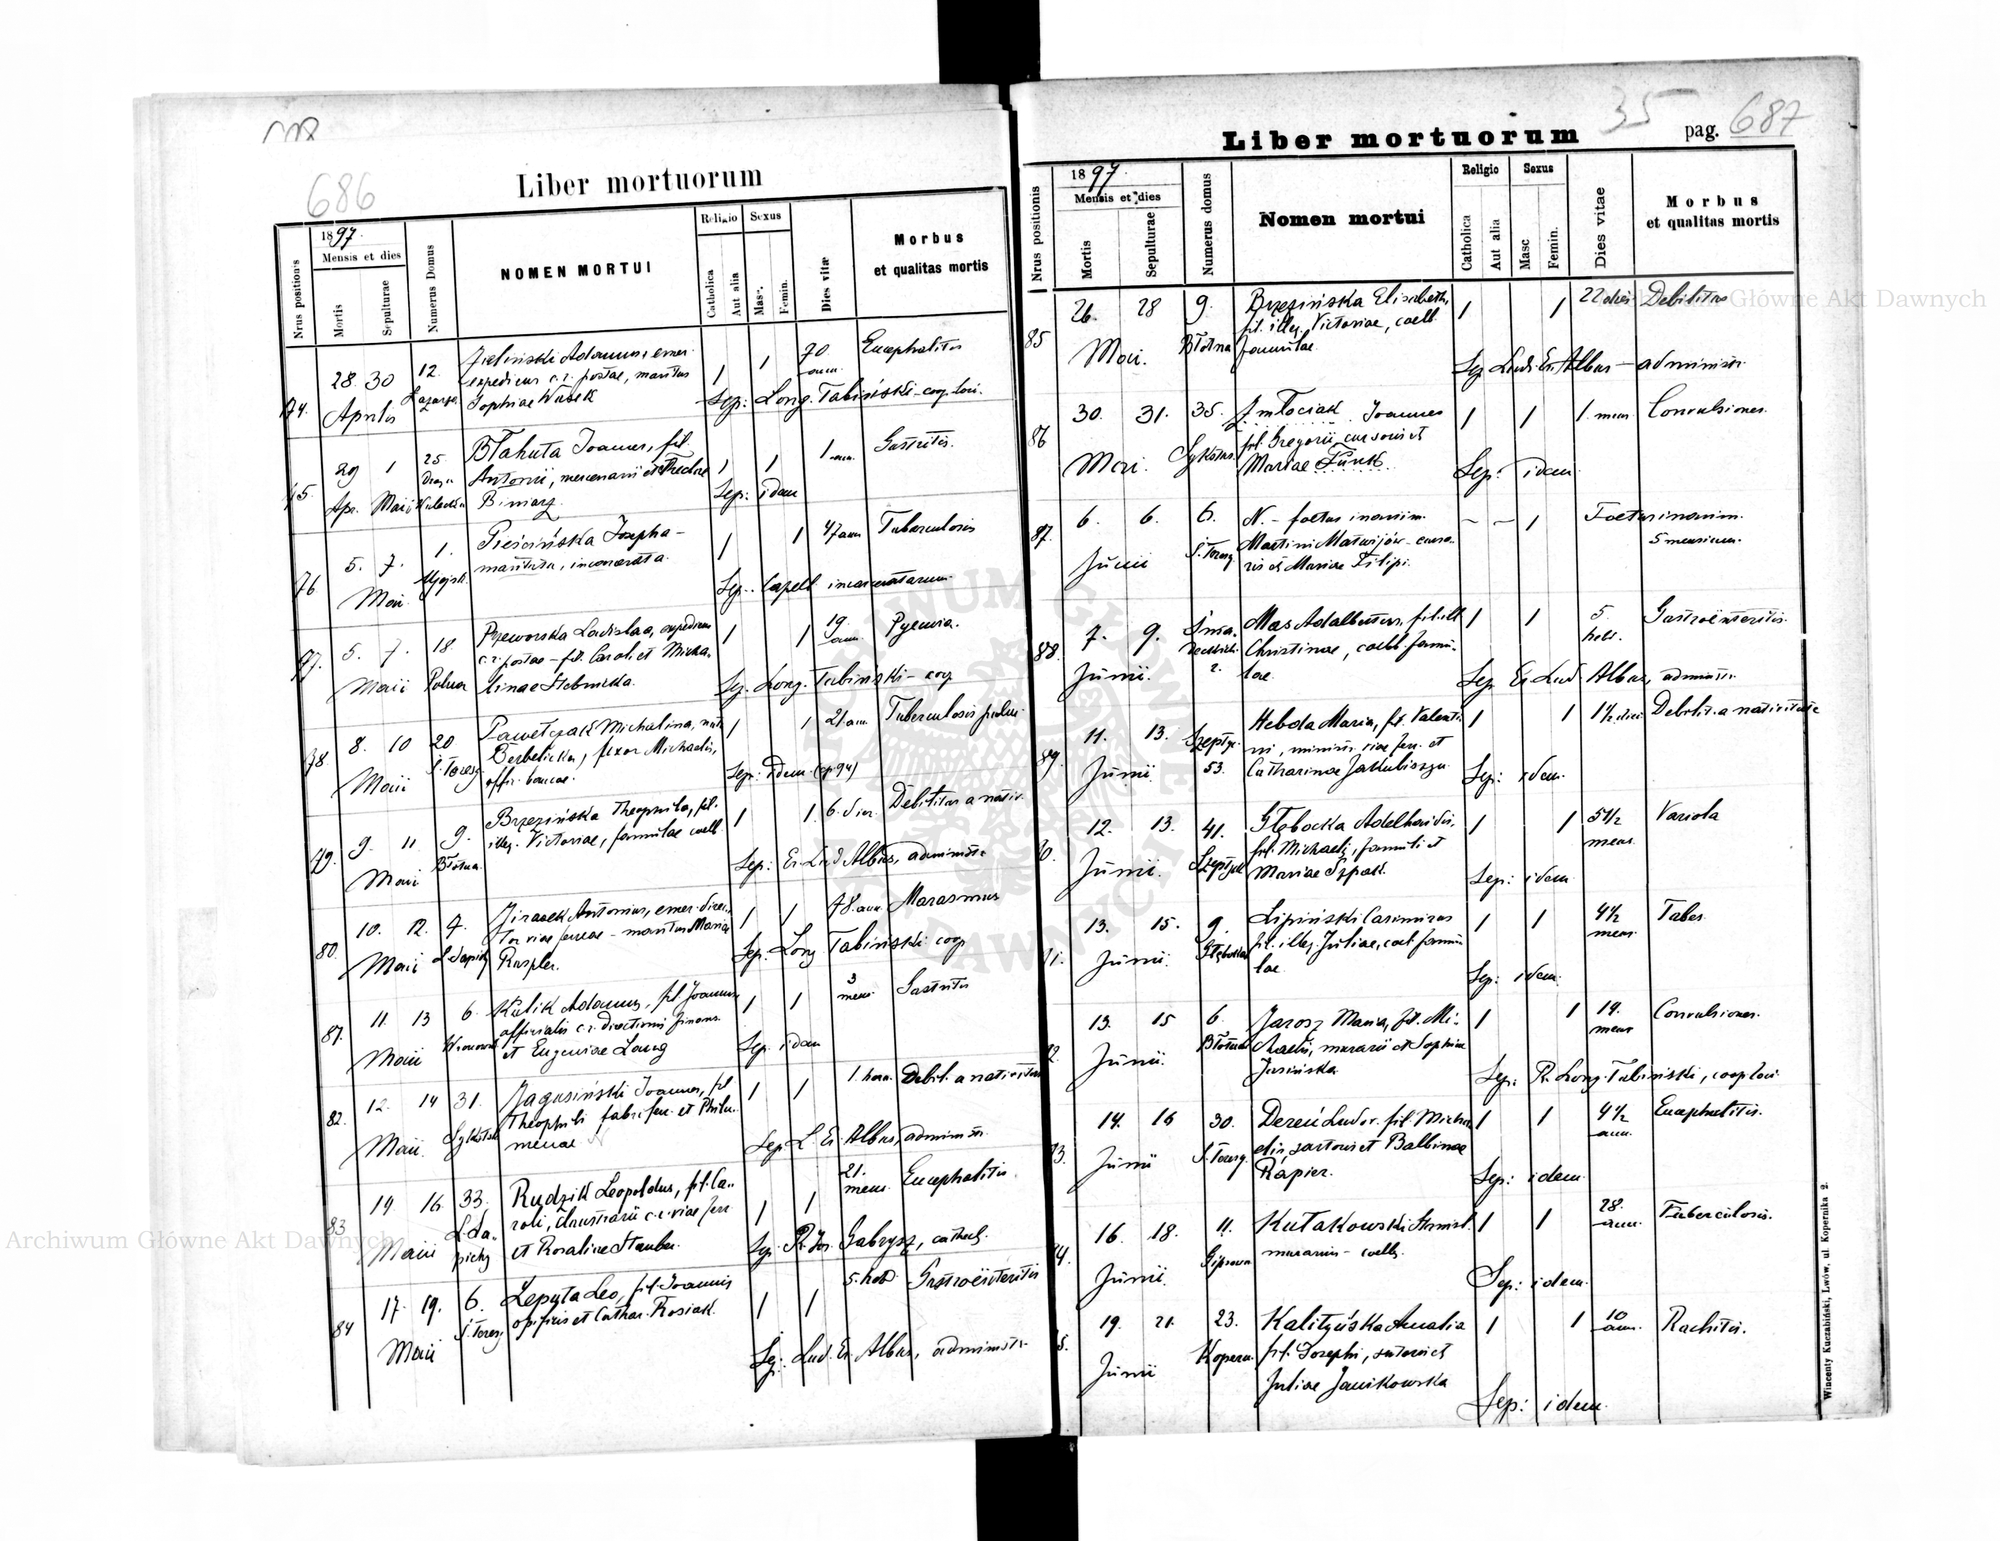 686
Liber mortuorum
Nrus positionis
1897.
Mensis et dies
Mortis
Sepulturae
Numerus Domus
NOMEN MORTUI
Religio
Catholica
Aut alia
Sexus
Masc.
Femin.
Dies vitæ
Morbus
et qualitas mortis
74.
28. 30
Aprilis
12.
Zieliński Adamus, emer.
expeditor c.r. postae, maritus
Sophiae
1 1
70
ann.
Encephalitis
Sep: Long. Tabiński - coop. loci.
75.
29 1
Apr. Maii
25
Błahuta Joannes, fil.
Antonii, mercenarii et Theclae
Biniarz
1 1
1 ann.
Gastritis.
Sep: idem
76
5. 7.
Maii
1.
Pieścińska Josepha -
marituta, incarcerata
1 1
47 ann
Tuberculosis
Sep. Capell. incarceratorum
77.
5. 7.
Maii
18.
Polna
Przeworska Ladislaa, expeditrix
c.r. postae - fil. Caroli et Micha-
linae Stebnicka.
1 1
19.
ann.
Pyemia.
Sep. Long. Tabiński - coop
78
8. 10
Maii
20
S. Teresy
Pawełczak Michalina, nata
Berbelicka, uxor Michaelis,
offic. bancae.
1 1
21. ann.
Tuberculosis pulm.
Sep: idem
79.
9. 11
Maii
9.
Błotna.
Brzezińska Theophila, fil.
illeg. Victoriae, famulae coelb
1 1
6. dier.
Debilitas a nativ.
Sep: Er. Lud Albus, administr.
80.
10. 12.
Maii
7.
L. Sapiehy
Jirasek Antonius, emer. direc-
tor viae ferreae - maritus Mariae
Raspler.
1 1
78. ann
Marasmus
Sep: Long Tabiński coop
81.
11. 13
Maii
6.
Kulik Adamus, fil. Joannis
officialis c.r. Directionis finans.
et Eugeniae Lang
1 1
3
mens.
Gastritis
Sep. idem
82.
12. 14
Maii
31.
Jagusiński Joannes, fil
Theophili fabri fer. et Philo-
menae
1 1
1. hora.
Debil. a nativitate
Sep. L. Er. Albus, administr.
83
14 16
Maii
33.
L. Sa-
piehy
Rudzik Leopoldus, fil. Ca-
roli, c.r. viae ferr
et Rosaliae Stauber.
1 1
21.
mens.
Encephalitis.
Sep. R. Jos. Gabrysz, cathech.
84
17. 19.
Maii
6.
S. Teresy
Lepyta Leo, fil. Joannis
opificis et Cathar. Rosiak.
1 1
5. hebd.
Gastroënteritis
Sep: Lud. Er. Albus, administr.
35
Liber mortuorum
pag. 687
Nrus positionis
1897.
Mensis et dies
Mortis
Sepulturae
Numerus domus
Nomen mortui
Religio
Catholica
Aut alia
Sexus
Masc
Femin.
Dies vitae
Morbus
et qualitas mortis
85
26. 28
Maii.
9.
Błotna
Brzezińska Elisabeth,
fil. illeg. Victoriae, coelb.
famulae.
1 1
22 dies
Debilitas
Sep Lud. Er. Albus - administr.
86
30. 31.
Maii.
35.
Zmłociak Joannes
fil. Gregorii, cursoris et
Mariae Funk.
1 1
1. mens
Convulsiones.
Sep: idem
87.
6. 6.
Junii
6.
S. Teresy
N. - foetus inanim.
Martini Matwijów - curso-
ris et Mariae Filipi.
- - 1
Foetus inanim.
5 mensium.
88.
7. 9.
Junii.
2.
Mas Adalbertus, fil. ill
Christinae, coelb. famu-
lae.
1 1
5.
hebd.
Gastroënteritis.
Sep Er. Lud. Albus, administr.
89.
11. 13.
Junii.
Szeptyc.
53.
Hebda Maria, fil. Valenti-
ni, ministr. viae ferr. et
Catharinae Jakubiszyn.
1 1
1½ diei
Debilit. a nativitate
Sep: idem.
12. 13.
Junii.
41.
Głębocka Adelhaidis,
fil. Michaelis, famuli et
Mariae Szpak.
1 1
5½
mens.
Variola
Sep: idem
13. 15.
Junii.
9.
Lipiński Casimirus
fil. illeg. Juliae, coel. famu-
lae.
1 1
4½
mens.
Tabes.
Sep: idem.
13. 15
Junii
6.
Jarosz Maria, fil. Mi-
chaelis, murarii et Sophiae
Jasińska.
1 1
14.
mens
Convulsiones.
Sep: R. Long. Tabiński, coop loci.
14. 16
Junii
30.
S. Teresy.
Dereń Ludov. fil. Micha-
elis, sartoris et Balbinae
Rapier.
1 1
4½
ann.
Encephalitis.
Sep: idem.
16. 18.
Junii.
11.
Gipsowa
Kułakowski Stanisl.
murarius - coelb.
1 1
28.
ann.
Tuberculosis.
Sep: idem.
19. 21.
Junii
23.
Kopern.
Kalityńska Amalia
fil. Josephi, sutoris et
Juliae Janikowska
1 1
10
ann.
Rachitis.
Sep: idem.
Wincenty Kuczabiński, Lwów, ul. Kopernika 2.
Archiwum Główne Akt Dawnych
Główne Akt Dawnych
ARCHIWUM GŁÓWNE AKT DAWNYCH